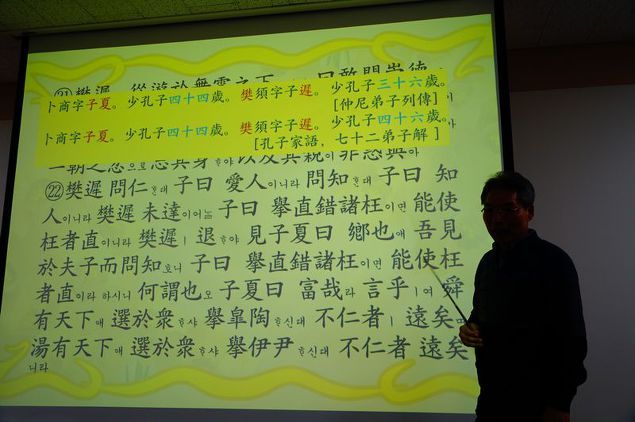 ㉑樊遲 從遊於無雩之下 曰敢問崇德
卜商字子夏。少孔子四十四歲。樊須字子遲。少孔子三十六歲。
[仲尼弟子列傳]
卜商字子夏。少孔子四十四歲。樊須字子遲。少孔子四十六歲。
[孔子家語, 七十二弟子解 ]
一朝之忿으로 忘其身ᄒᆞ야 以及其親이 非惑與아
㉒樊遲 問仁ᄒᆞᆫ대 子曰 愛人이니라 問知ᄒᆞᆫ대 子曰 知
人이니라 樊遲 未達이어늘 子曰 擧直錯諸枉이면 能使
枉者直이니라 樊遲ㅣ 退ᄒᆞ야 見子夏曰 鄕也애 吾見
於夫子而問知호니 子曰 擧直錯諸枉이면 能使枉
者直이라 하시니 何謂也오 子夏曰 富哉라 言乎ㅣ여 舜
有天下애 選於衆ᄒᆞ샤 擧皐陶ᄒᆞ신대 不仁者ㅣ 遠矣며
湯有天下애 選於衆ᄒᆞ샤 擧伊尹ᄒᆞ신대 不仁者 遠矣
니라